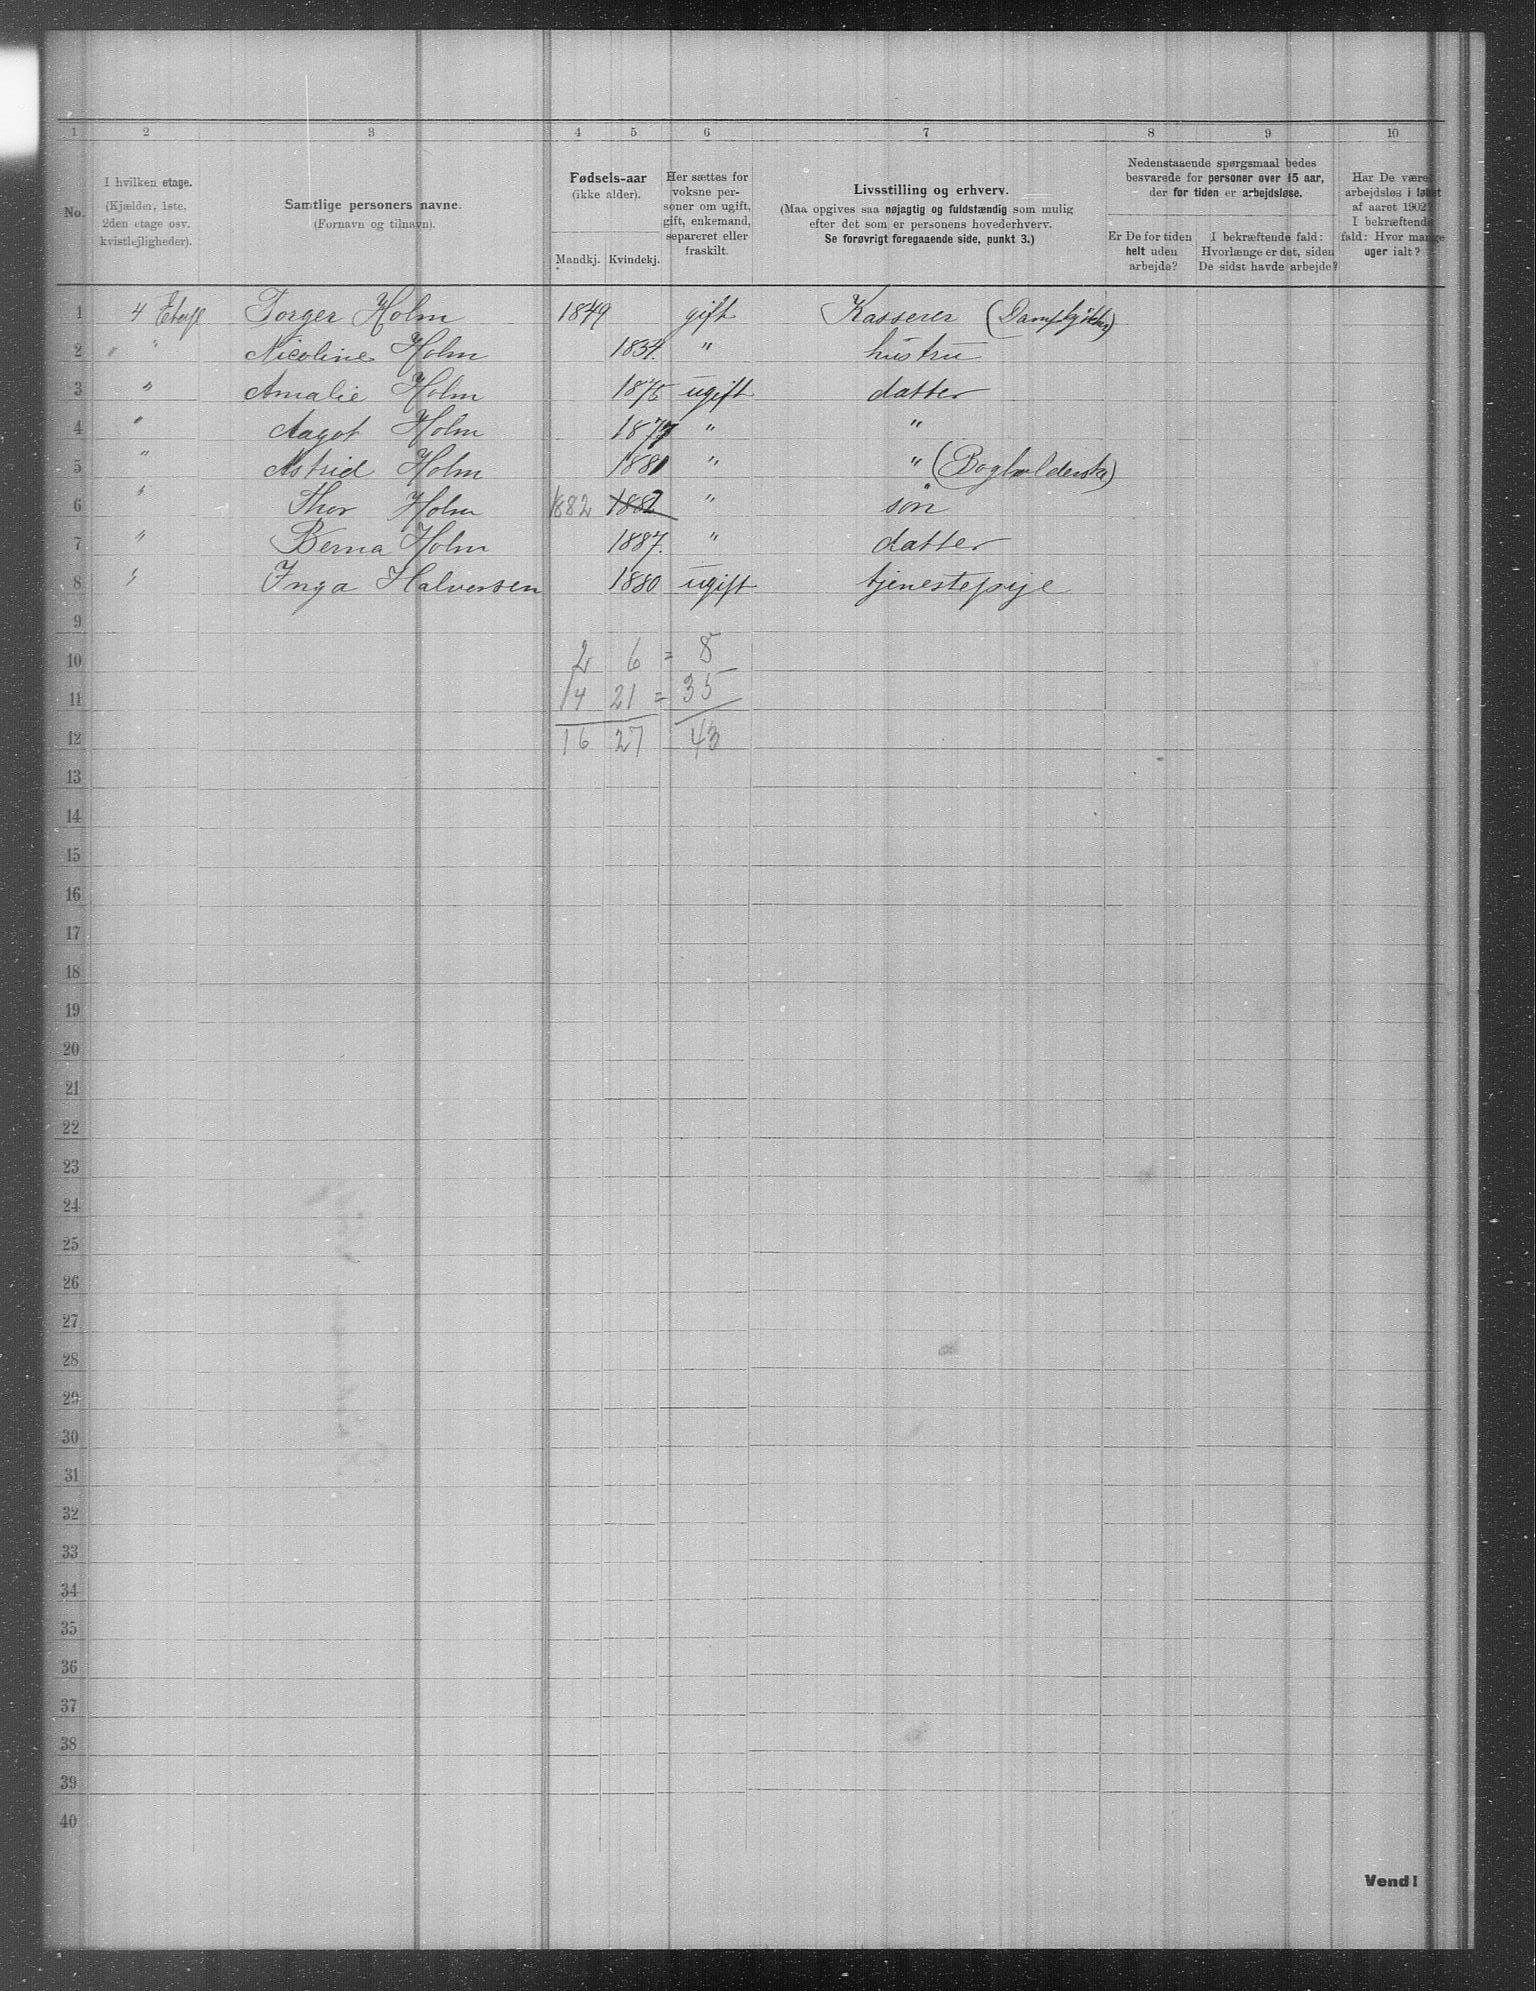 1 2 3 4 5 6 7 8 9 10
No.
I hvilken etage.
(Kjælder, 1ste, 2den etage osv. kvistlejligheder).
Samtlige personers navne.
(Fornavn og tilnavn).
Fødsels-aar
(ikke alder).
Mandkj. Kvindekj.
Her sættes for voksne personer om ugift, gift, enkemand, separeret eller fraskilt.
Livsstilling og erhverv.
(Maa opgives saa nøjagtig og fuldstændig som mulig
efter det som er personens hovederhverv.
Se forøvrigt foregaaende side, punkt 3.)
Nedenstaaende spørgsmaal bedes
besvarede for personer over 15 aar,
der for tiden er arbejdsløse.
Er De for tiden
helt uden
arbejde?
I bekræftende fald:
Hvorlænge er det, siden
De sidst havde arbejde?
Har De været
arbejdsløs i løbet
af aaret 1902?
I bekræftende
fald: Hvor mange
uger ialt?
1 4 Torger Holm 1849 gift Kasserer
2 " Nicoline Holm 1834. " hustru
3 " Amalie Holm 1875 ugift datter
4 " Aagot Holm 1877 " "
5 " Astrid Holm 1881 " " (Bogholderske)
6 " Thor Holm 1882 1882 " søn
7 " Berna Holm 1887. " datter
8 " Inga Halvorsen 1880 ugift tjenestepige
9
10 2 6 = 8
11 14 21 = 35
12 16 27 43
13
14
15
16
17
18
19
20
21
22
23
24
25
26
27
28
29
30
31
32
33
34
35
36
37
38
39
40
Vend!